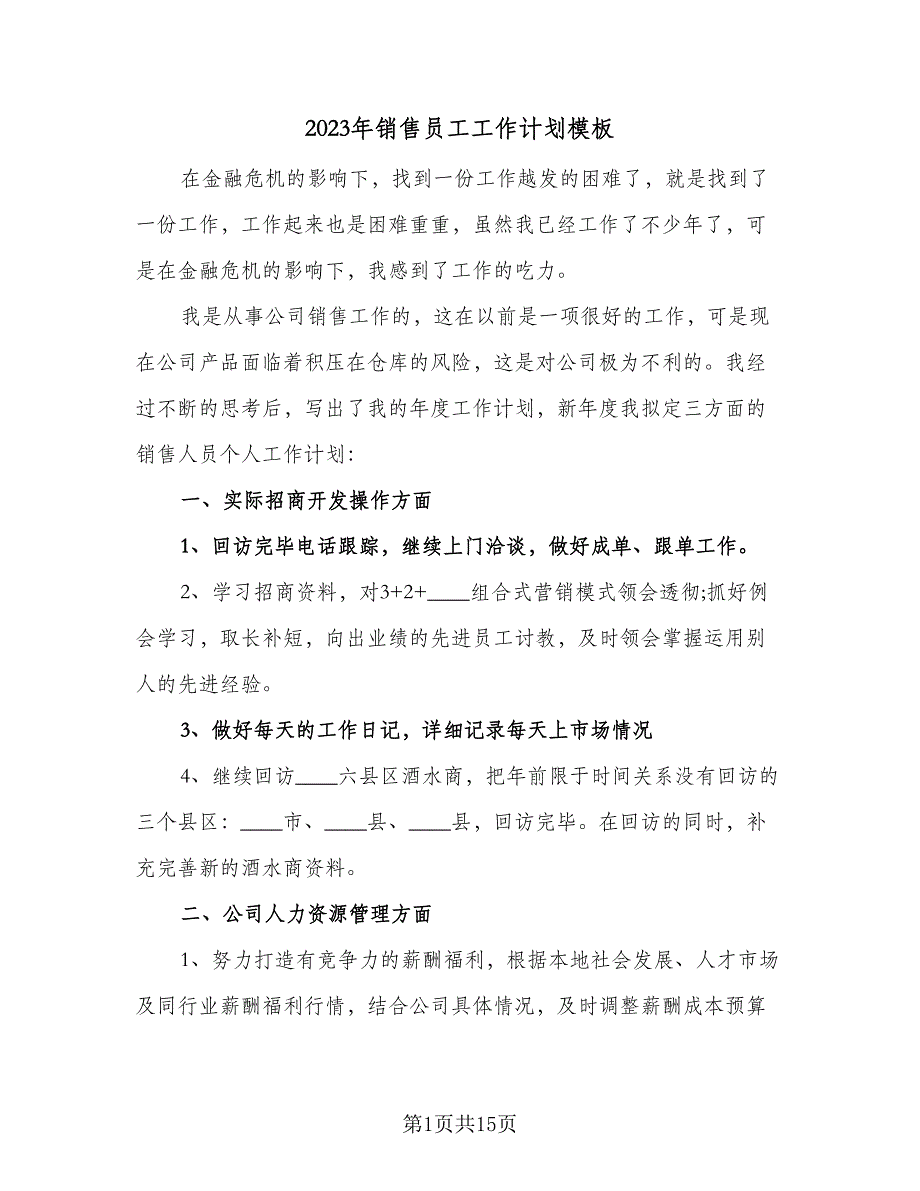 2023年销售员工工作计划模板
在金融危机的影响下，找到一份工作越发的困难了，就是找到了
一份工作，工作起来也是困难重重，虽然我已经工作了不少年了，可
是在金融危机的影响下，我感到了工作的吃力。
我是从事公司销售工作的，这在以前是一项很好的工作，可是现
在公司产品面临着积压在仓库的风险，这是对公司极为不利的。我经
过不断的思考后，写出了我的年度工作计划，新年度我拟定三方面的
销售人员个人工作计划：
一、实际招商开发操作方面
1、回访完毕电话跟踪，继续上门洽谈，做好成单、跟单工作。
2、学习招商资料，对3+2+____组合式营销模式领会透彻;抓好例
会学习，取长补短，向出业绩的先进员工讨教，及时领会掌握运用别
人的先进经验。
3、做好每天的工作日记，详细记录每天上市场情况
4、继续回访____六县区酒水商，把年前限于时间关系没有回访的
三个县区：____市、____县、____县，回访完毕。在回访的同时，补
充完善新的酒水商资料。
二、公司人力资源管理方面
1、努力打造有竞争力的薪酬福利，根据本地社会发展、人才市场
及同行业薪酬福利行情，结合公司具体情况，及时调整薪酬成本预算
第1页共15页